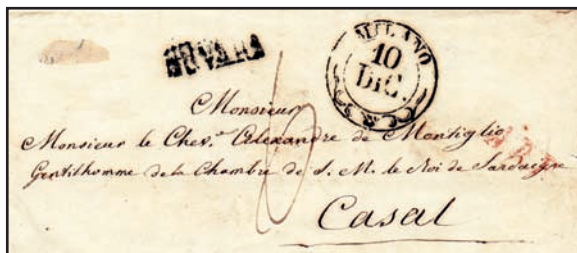 NOVARA
MILANO
10
DIC.
Monsieur
Monsieur le Chev.r Alexandre de Montiglio
Gentilhomme de la Chambre de S. M. le Roi de Sardaigne
Casal